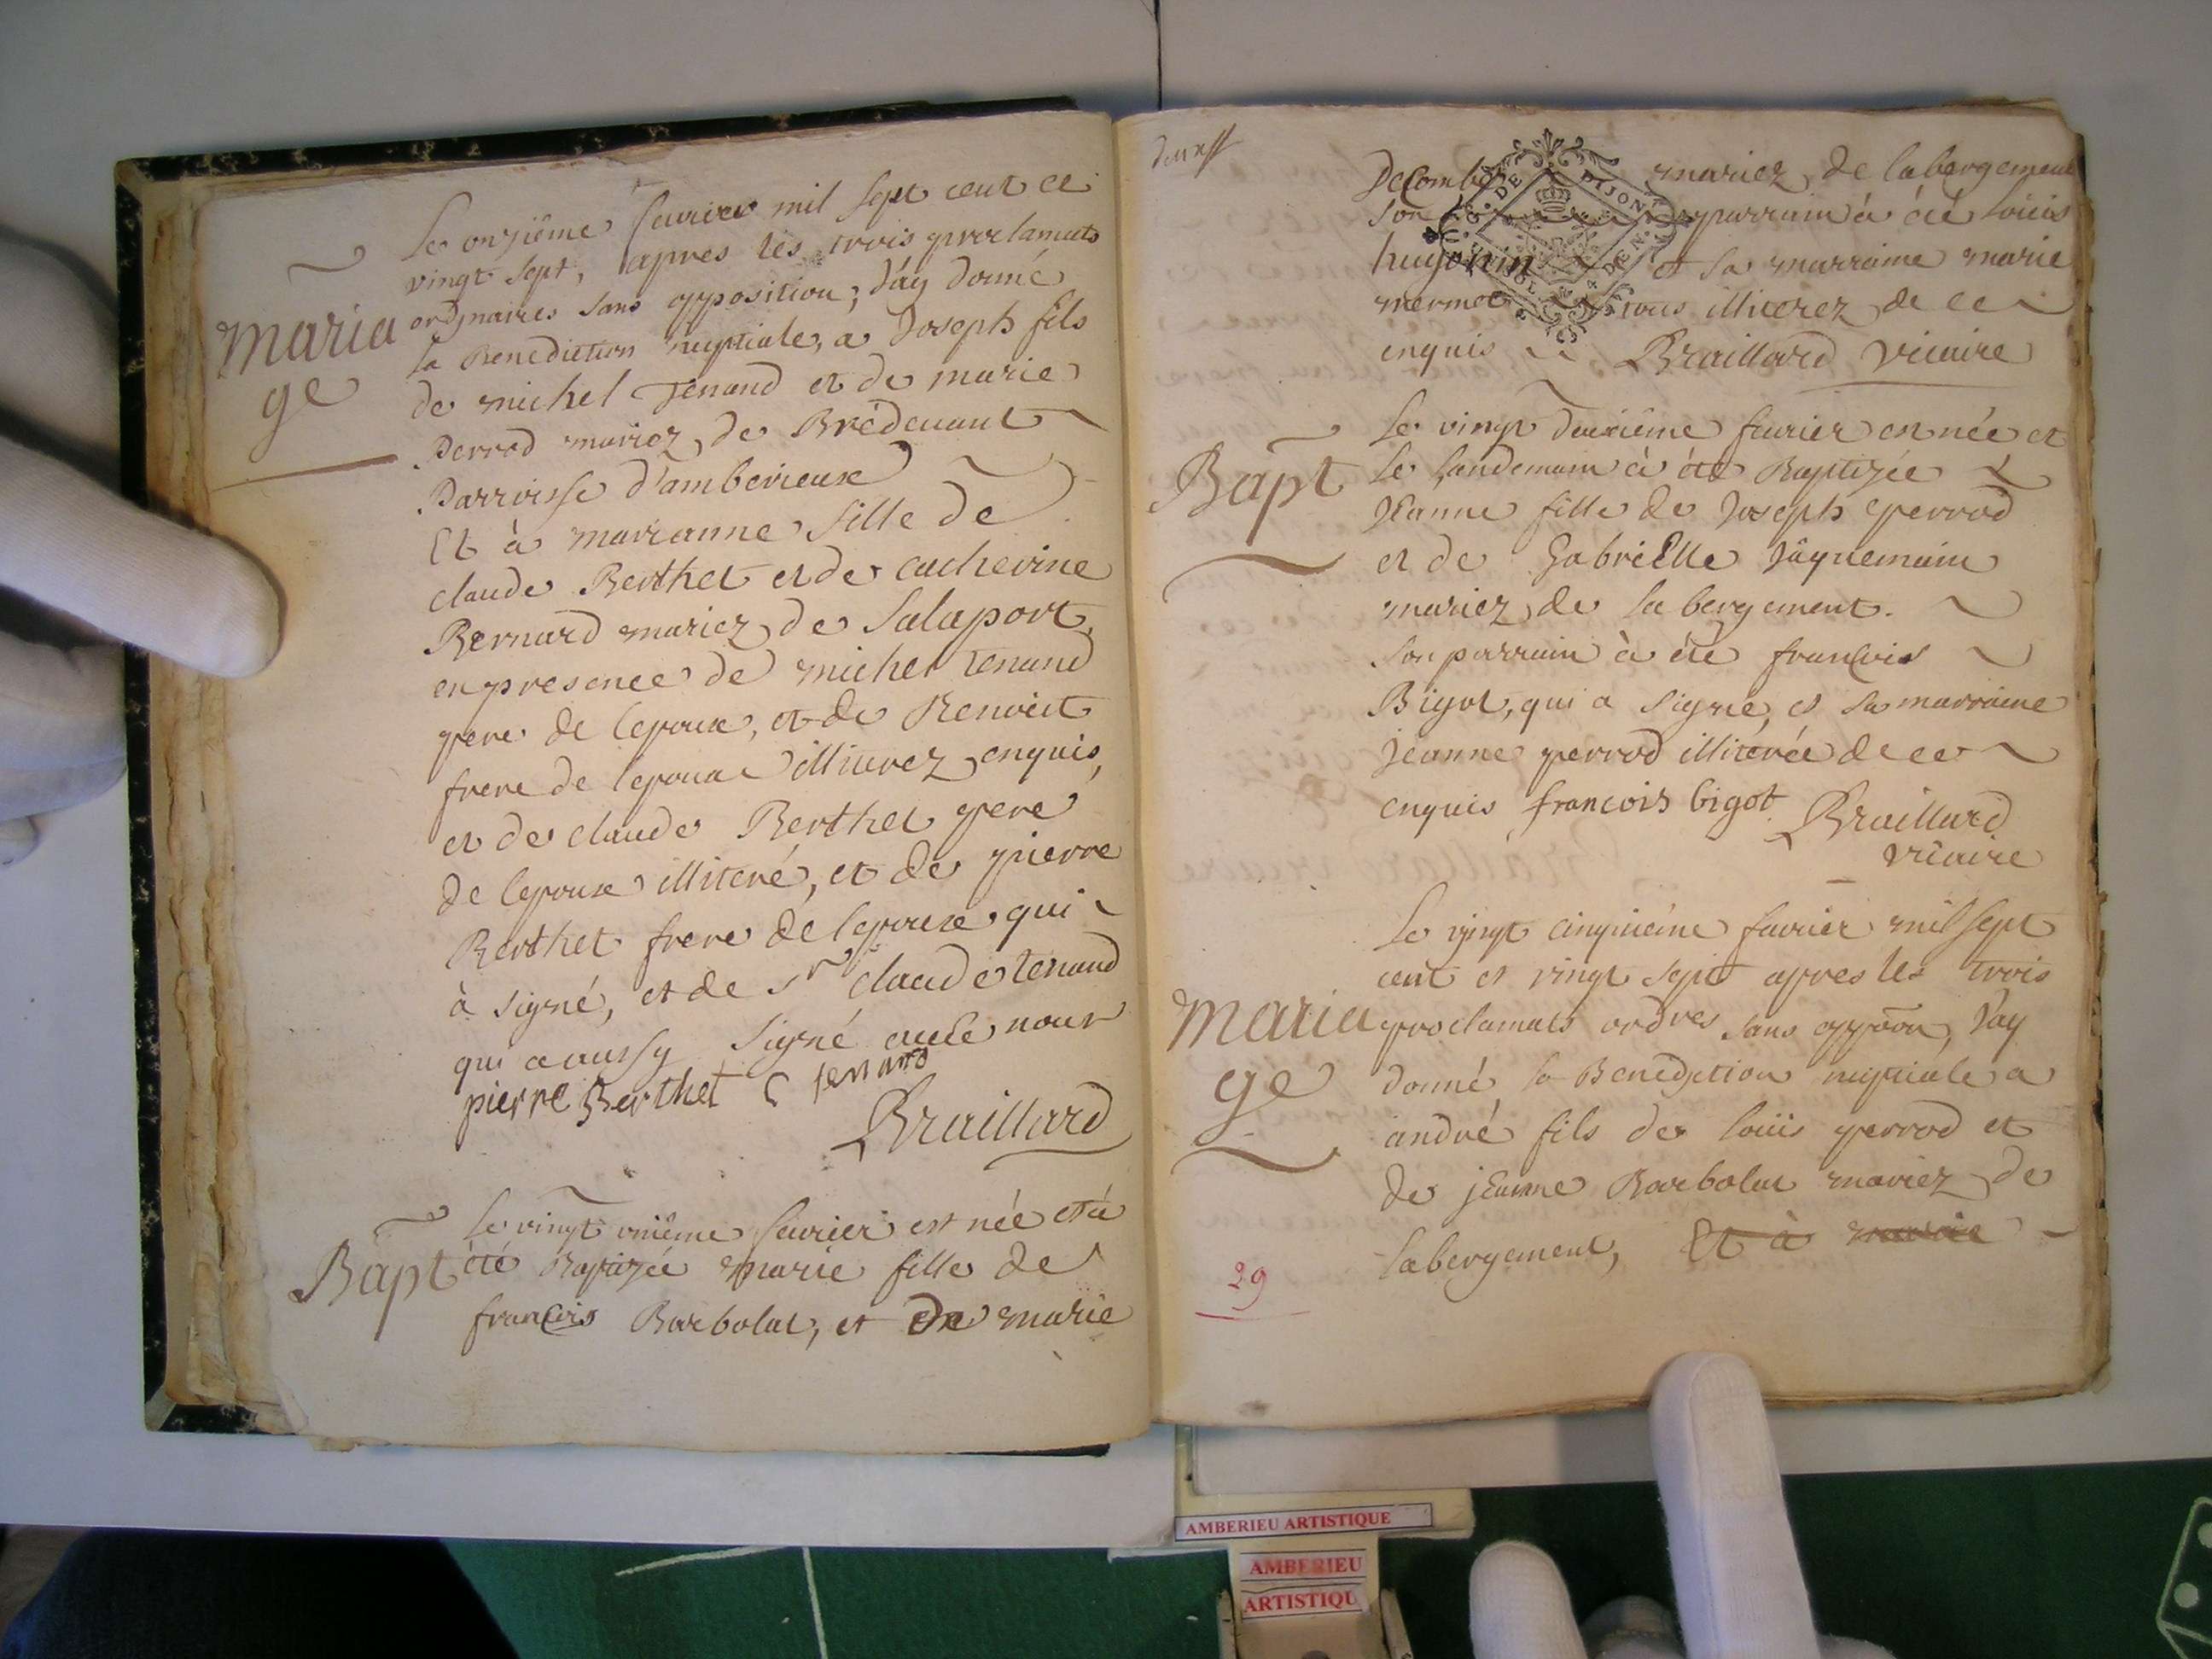 Le onziéme feurier mil sept cent et
vingt sept, apres les trois proclamats
ordinaires sans opposition, J'ay donné
Maria
ge
la Benediction nuptiale, a Joseph fils
de michel Tenand et de marie
Perrod mariez de Brédeuant
Parroisse d'amberieux
Et à marianne fille de
claude Berthet et de catherine
Bernard mariez de Salaport,
en presence de michel tenand
pere de lepoux, et de Benoist
frere de lepoux illiterez enquis,
et de claude Berthet pere
de lepouse illiteré, et de pierre
Berthet frere de lepouse qui
à signé, et de Sr claude tenand
qui a aussy signé auec nous
pierre Berthet C tenand
Braillard
Bapt
Le vingt uniéme feurier est née et à
été Baptizée marie fille de
francois Barbolat, et de marie
Decombe mariez de labergement
son parrain à été Loüis
hugonin et sa marraine marie
mermet tous illiterez de ce
enquis Braillard vicaire
G. DE DIJON
4 DEN.
Bapt
Le vingt deuxiéme feurier est née et
le landemain à été Baptizée
Jeanne fille de Joseph perrod
et de GabriElle Jâquemain
mariez de labergement.
son parrain à été francois
Bigot, qui a signé, et sa marraine
Jeanne perrod illiterée de ce
enquis francois bigot Braillard
vicaire
Maria
ge
Le vingt cinquiéme feurier mil sept
cent et vingt sept apres les trois
proclamats ordres sans oppõon, J'ay
donné la Benediction nuptiale a
andré fils de loüis perrod et
de jeanne Barbolat mariez de
labergement, Et à marie
29
AMBERIEU ARTISTIQUE
AMBERIEU
ARTISTIQU